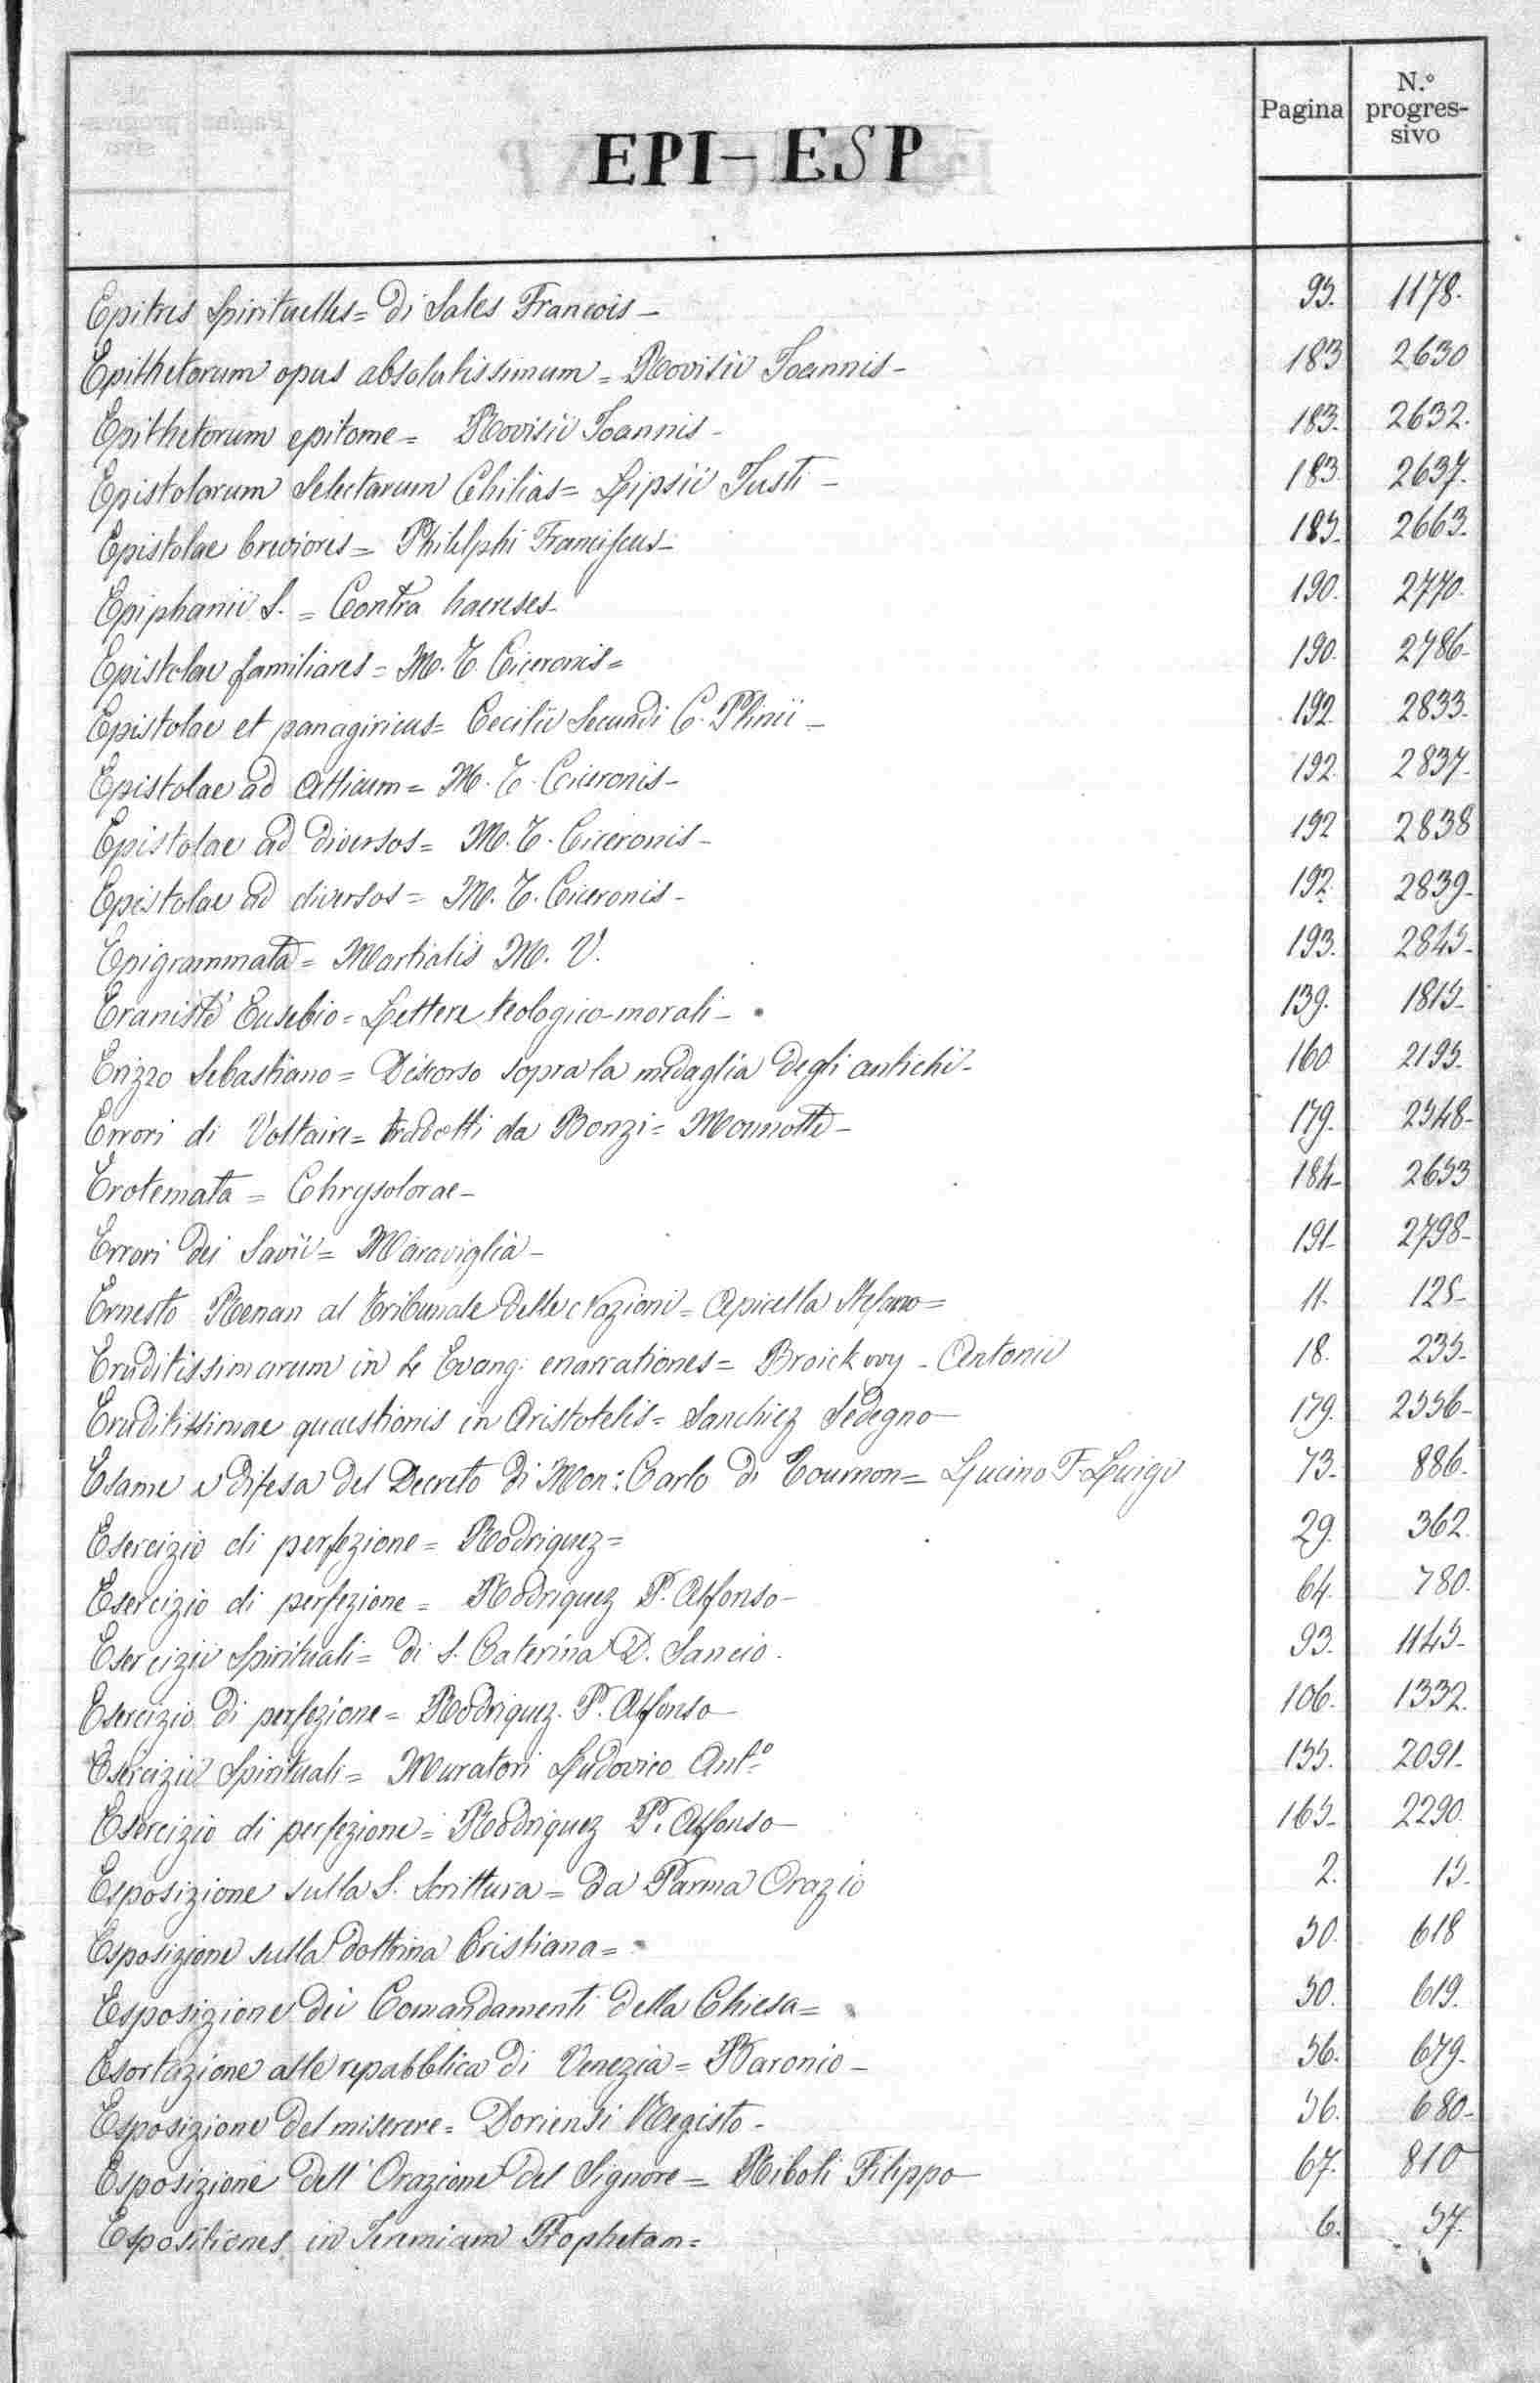 EPI-ESP
Pagina
N.º progres-
sivo
Epitres Spirituelles= Di Sales Francois- 95. 1178.
Epithetorum opus absolutissimum= Rovisii Ioannis- 183 2630
Epithetorum epitome= Rovisii Ioannis- 183. 2632.
Epistolarum Selectarum Chilias= Lipsii Justi- 183. 2637.
Epistolae breviores= Philelphi Francifcus- 185. 2663.
Epiphanii S. = Contra haereses- 190. 2770.
Epistolae familiares= M. T. Ciceronis= 190. 2786-
Epistolae et panagiricus= Cecilii Secundi C. Plinii- 192. 2833.
Epistolae ad Atticum= M. T. Ciceronis- 192. 2837-
Epistolae ad diversos= M. T. Ciceronis- 192 2838
Epistolae ad diversos= M. T. Ciceronis- 192. 2839-
Epigrammata= Martialis M. V. 193. 2845-
Eraniste Eusebio= Lettere teologico-morali- 139. 1815-
Erizzo Sebastiano= Discorso sopra la medaglia degli antichi- 160 2195-
Errori di Voltaire= tradotti da Bonzi= Monnotte- 179. 2548-
Erotemata= Chrysolorae- 184- 2653
Errori dei Savii= Maraviglia- 191- 2798-
Ernesto Renan al Tribunale delle Nazioni= Apicella Stefano= 11. 125-
Eruditissimarum in 4 Evang: enarrationes= Broickwy- Antonii 18. 235-
Eruditissimae quaestionis in Aristotelis= Sanchiez Sedegno- 179. 2556-
Esame e difesa del Decreto di Mon: Carlo di Tournon= Lucino F. Luigi 73. 886.
Esercizio di perfezione= Rodriguez= 29. 362.
Esercizio di perfezione= Rodriguez P. Alfonso- 64. 780.
Esercizii Spirituali= di S. Caterina D. Sancio. 93. 1145-
Esercizio di perfezione= Rodriquez. P. Alfonso- 106. 1332.
Esercizii Spirituali= Muratori Ludovico Ant.º 155. 2091-
Esercizio di perfezione= Rodriquez P. Alfonso- 165- 2290.
Esposizione sulla S. Scrittura= da Parma Orazio 2. 15-
Esposizione sulla dottrina Cristiana= 50. 618
Esposizione dei Comandamenti della Chiesa= 50. 619.
Esortazione alle repabblica di Venezia= Baronio- 56. 679-
Esposizione del miserere= Doriensi Registo- 56. 680-
Esposizione dell' Orazione del Signore= Riboli Filippo- 67. 810
Espositiones in Ieremiam Prophetam= 6. 57.